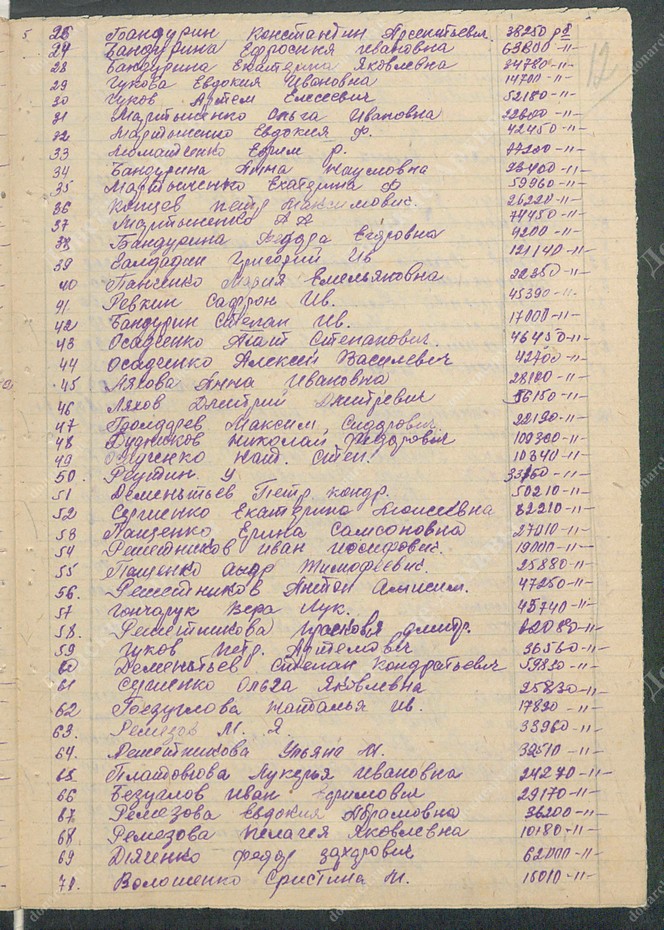 12
26 Бандурин Константин Арсентьевич. 38250 рб
27 Бандурина Ефросиня Ивановна 63800-11-
28 Бандурина Екатерина Яковлевна 34780-11-
29 Чукова Евдокия Ивановна 14700-11-
30 Чуков Артем Елесеевич 52180-11-
31 Мартыненко Ольга Ивановна 22600-11-
32 Мартыненко Евдокия Ф. 42450-11-
33 Ефим Р.
34 Бандурина Анна Наумовна 26400-11-
35 Мартынченко Екатерина Ф 59960-11-
36 Концев Петр Максимович. 26220-11-
37 Мартыненко А А 74450-11-
38 Бандурина Федора Егоровна 4200-11-
39 Григорий Ив 121140-11-
40 Панченко Мария Емельяновна 32350-11-
41 Ревкин Сафрон Ив. 45390-11-
42 Бандурин Степан Ив. 17000-11-
43 Осадченко Степанович. 46450-11-
44 Осадченко Алексей Василевич 42700-11-
45 Ляхова Анна Ивановна 28100-11-
46 Ляхов Дмитрий Дмитревич 56150-11-
47 Максим Сидорович. 22190-11-
48 Дудников Николай Федорович 100300-11-
49 Нат. Степ. 10340-11-
50. Реутин У
51 Дементьев Петр Кондр. 50210-11-
52 Сергиенко Екатерина Моисеевна 82210-11-
53 Пащенко Ерина Самсоновна 27010-11-
54 Решетников Иван Иосифович. 19000-11-
55 Пащенко Тимофеевич. 25880-11-
56. Решетников Антон 47250-11-
57 Гончарук Вера Лук. 45740-11-
58. Решетникова Прасковя Дмитр. 62080-11-
59 Чуков Петр. Артемович 36560-11-
60 Дементьев Степан Кондратьевич 59830-11-
61 Ольга Яковлевна 25830-11-
62 Безуглова Наталья Ив. 17890-11-
63. Ремезов М. Я. 33960-11-
64. Решетникова Ульяна М. 32510-11-
65 Платовова Лукерья Ивановна 24270-11-
66 Безуглов Иван Ефимович 29170-11-
67 Ремезова Евдокия Абрамовна 36200-11-
68 Ремезова Пелагея Яковлевна 10180-11-
69 Дяченко Федор Захарович 62000-11-
70. Волошенко Христина М. 15010-11-